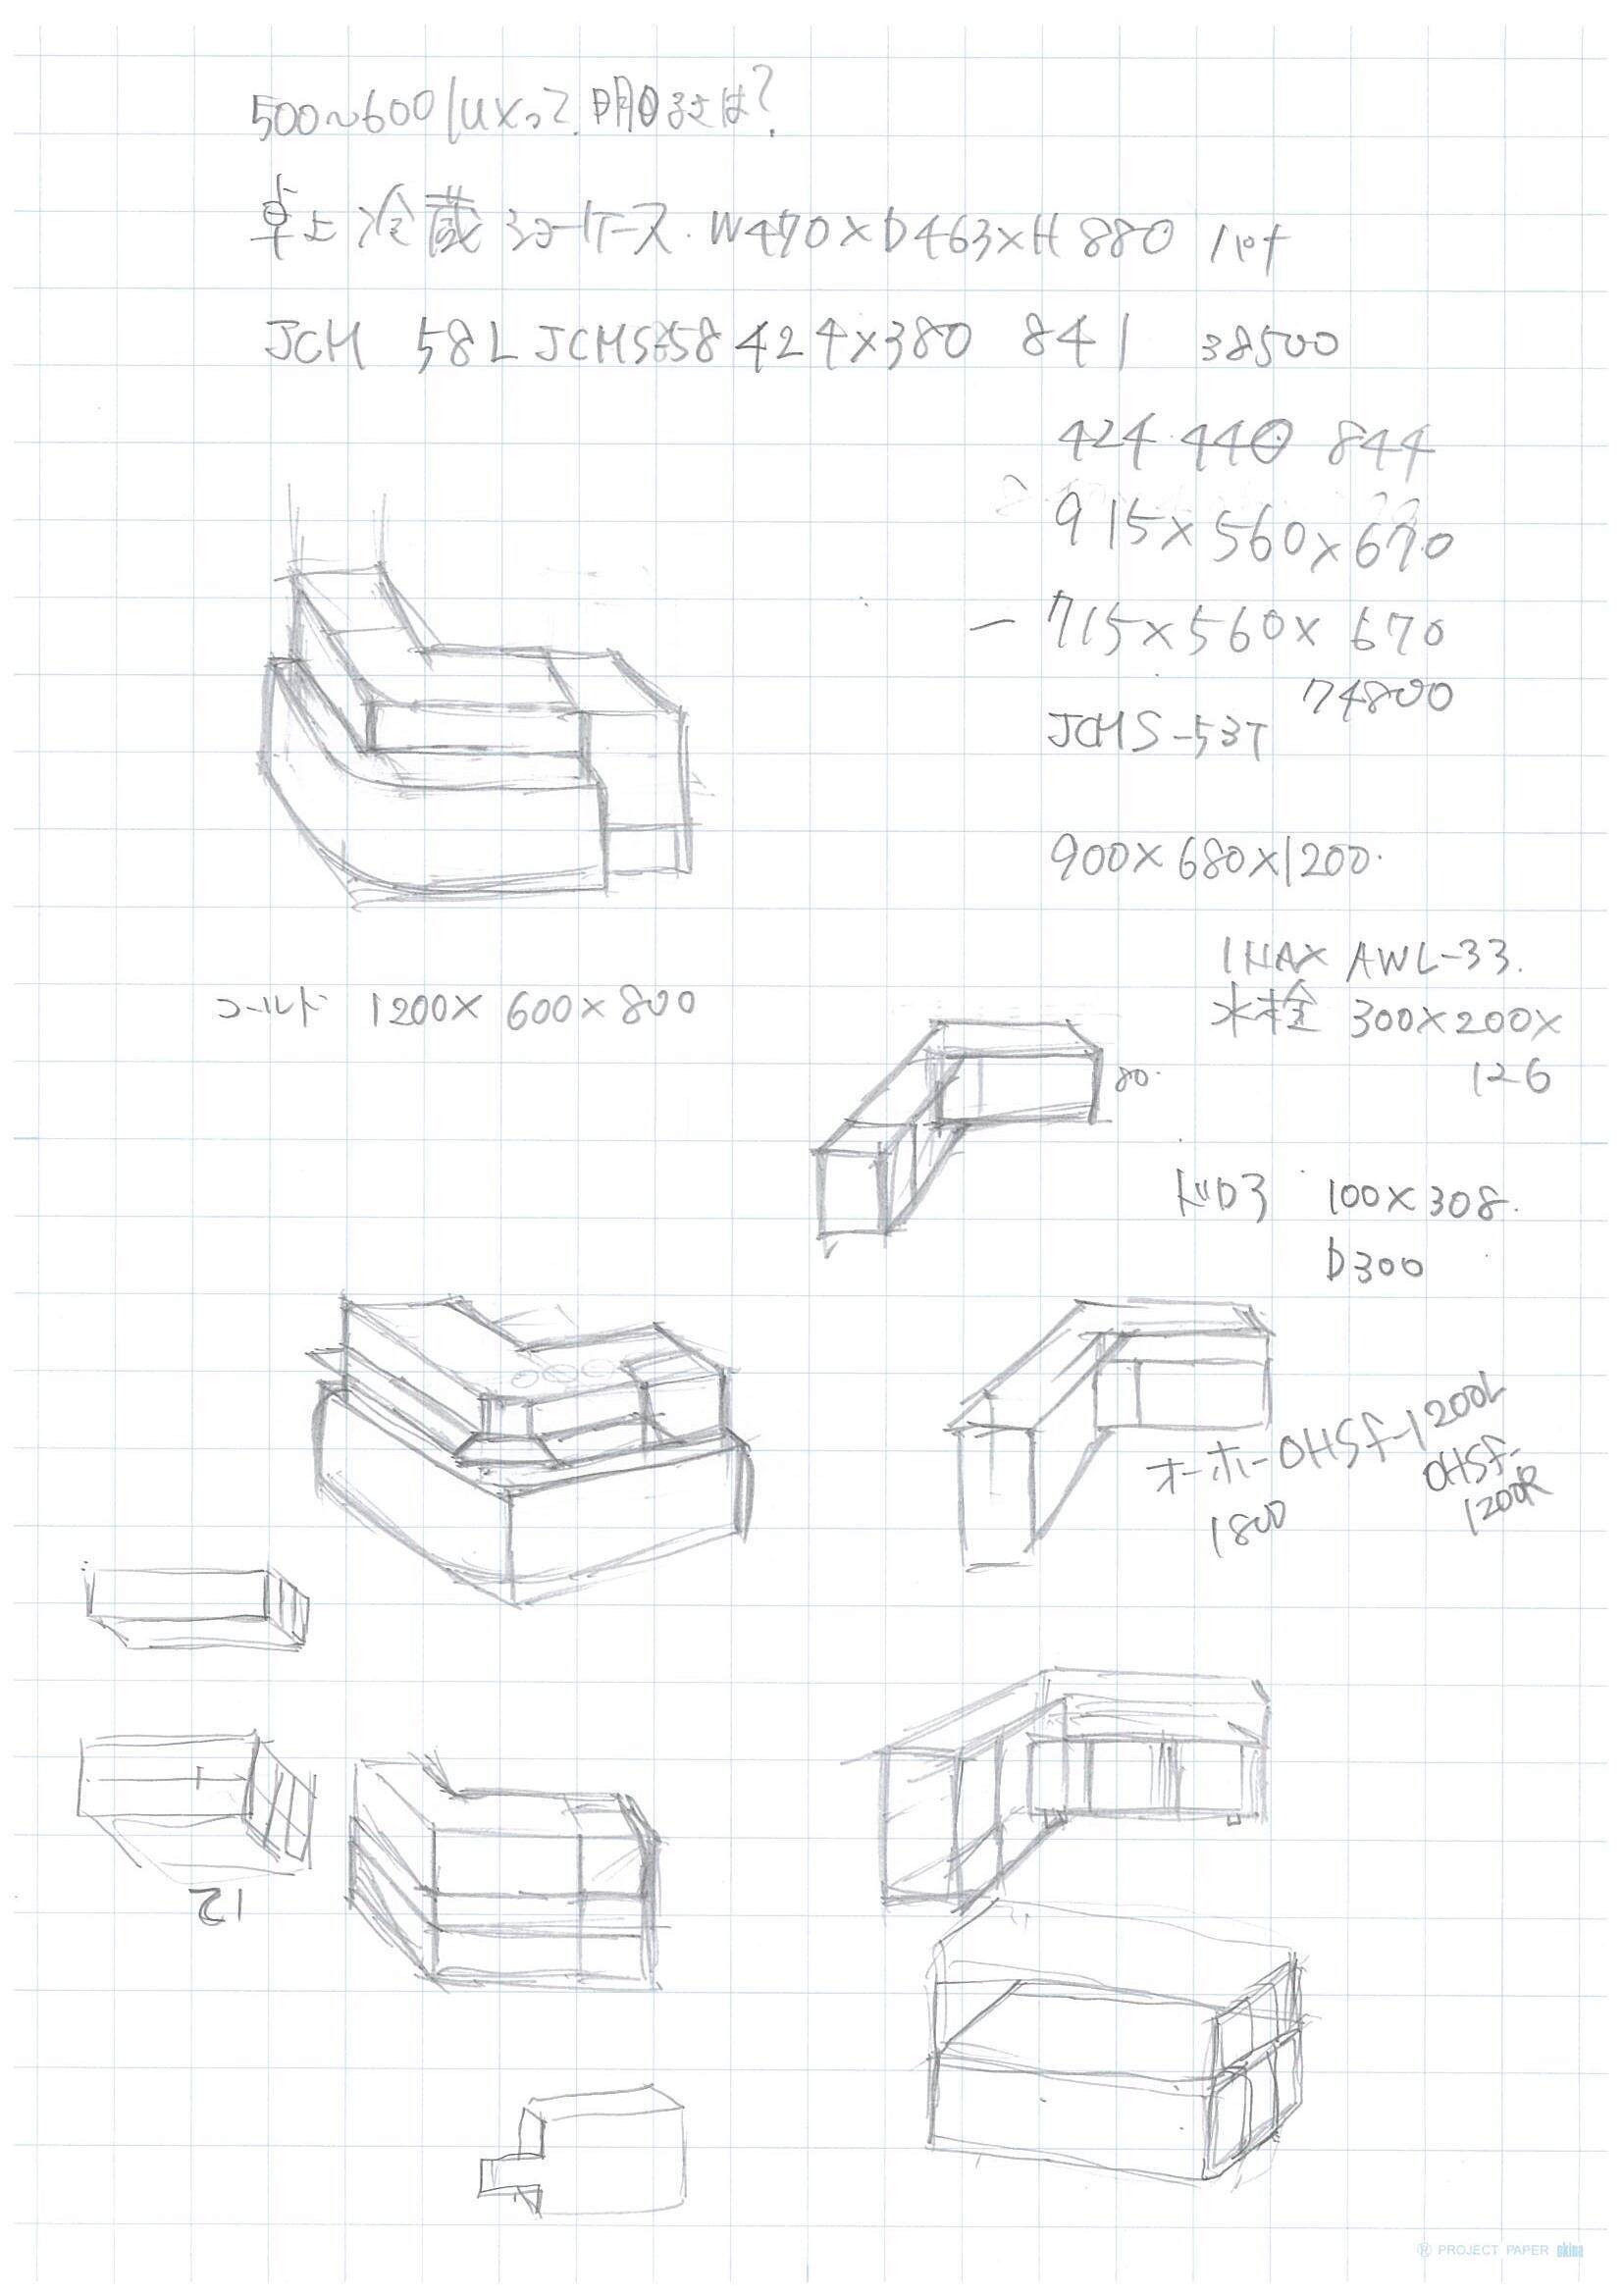 500~600luxって明るさは?
卓上冷蔵ショーケース. W470×D463×H880
JCM 58L JCMS-58 424×380 841 38500
424 440 844
915×560×670
- 715×560×670
74800
JCMS-53T
900×680×1200.
INAX AWL-33.
コールド 1200×600×800
水栓 300×200×
126
80.
100×308.
D300
オーホー OHSF-1200L
OHSF-
1200R
1800
12
PROJECT PAPER okina